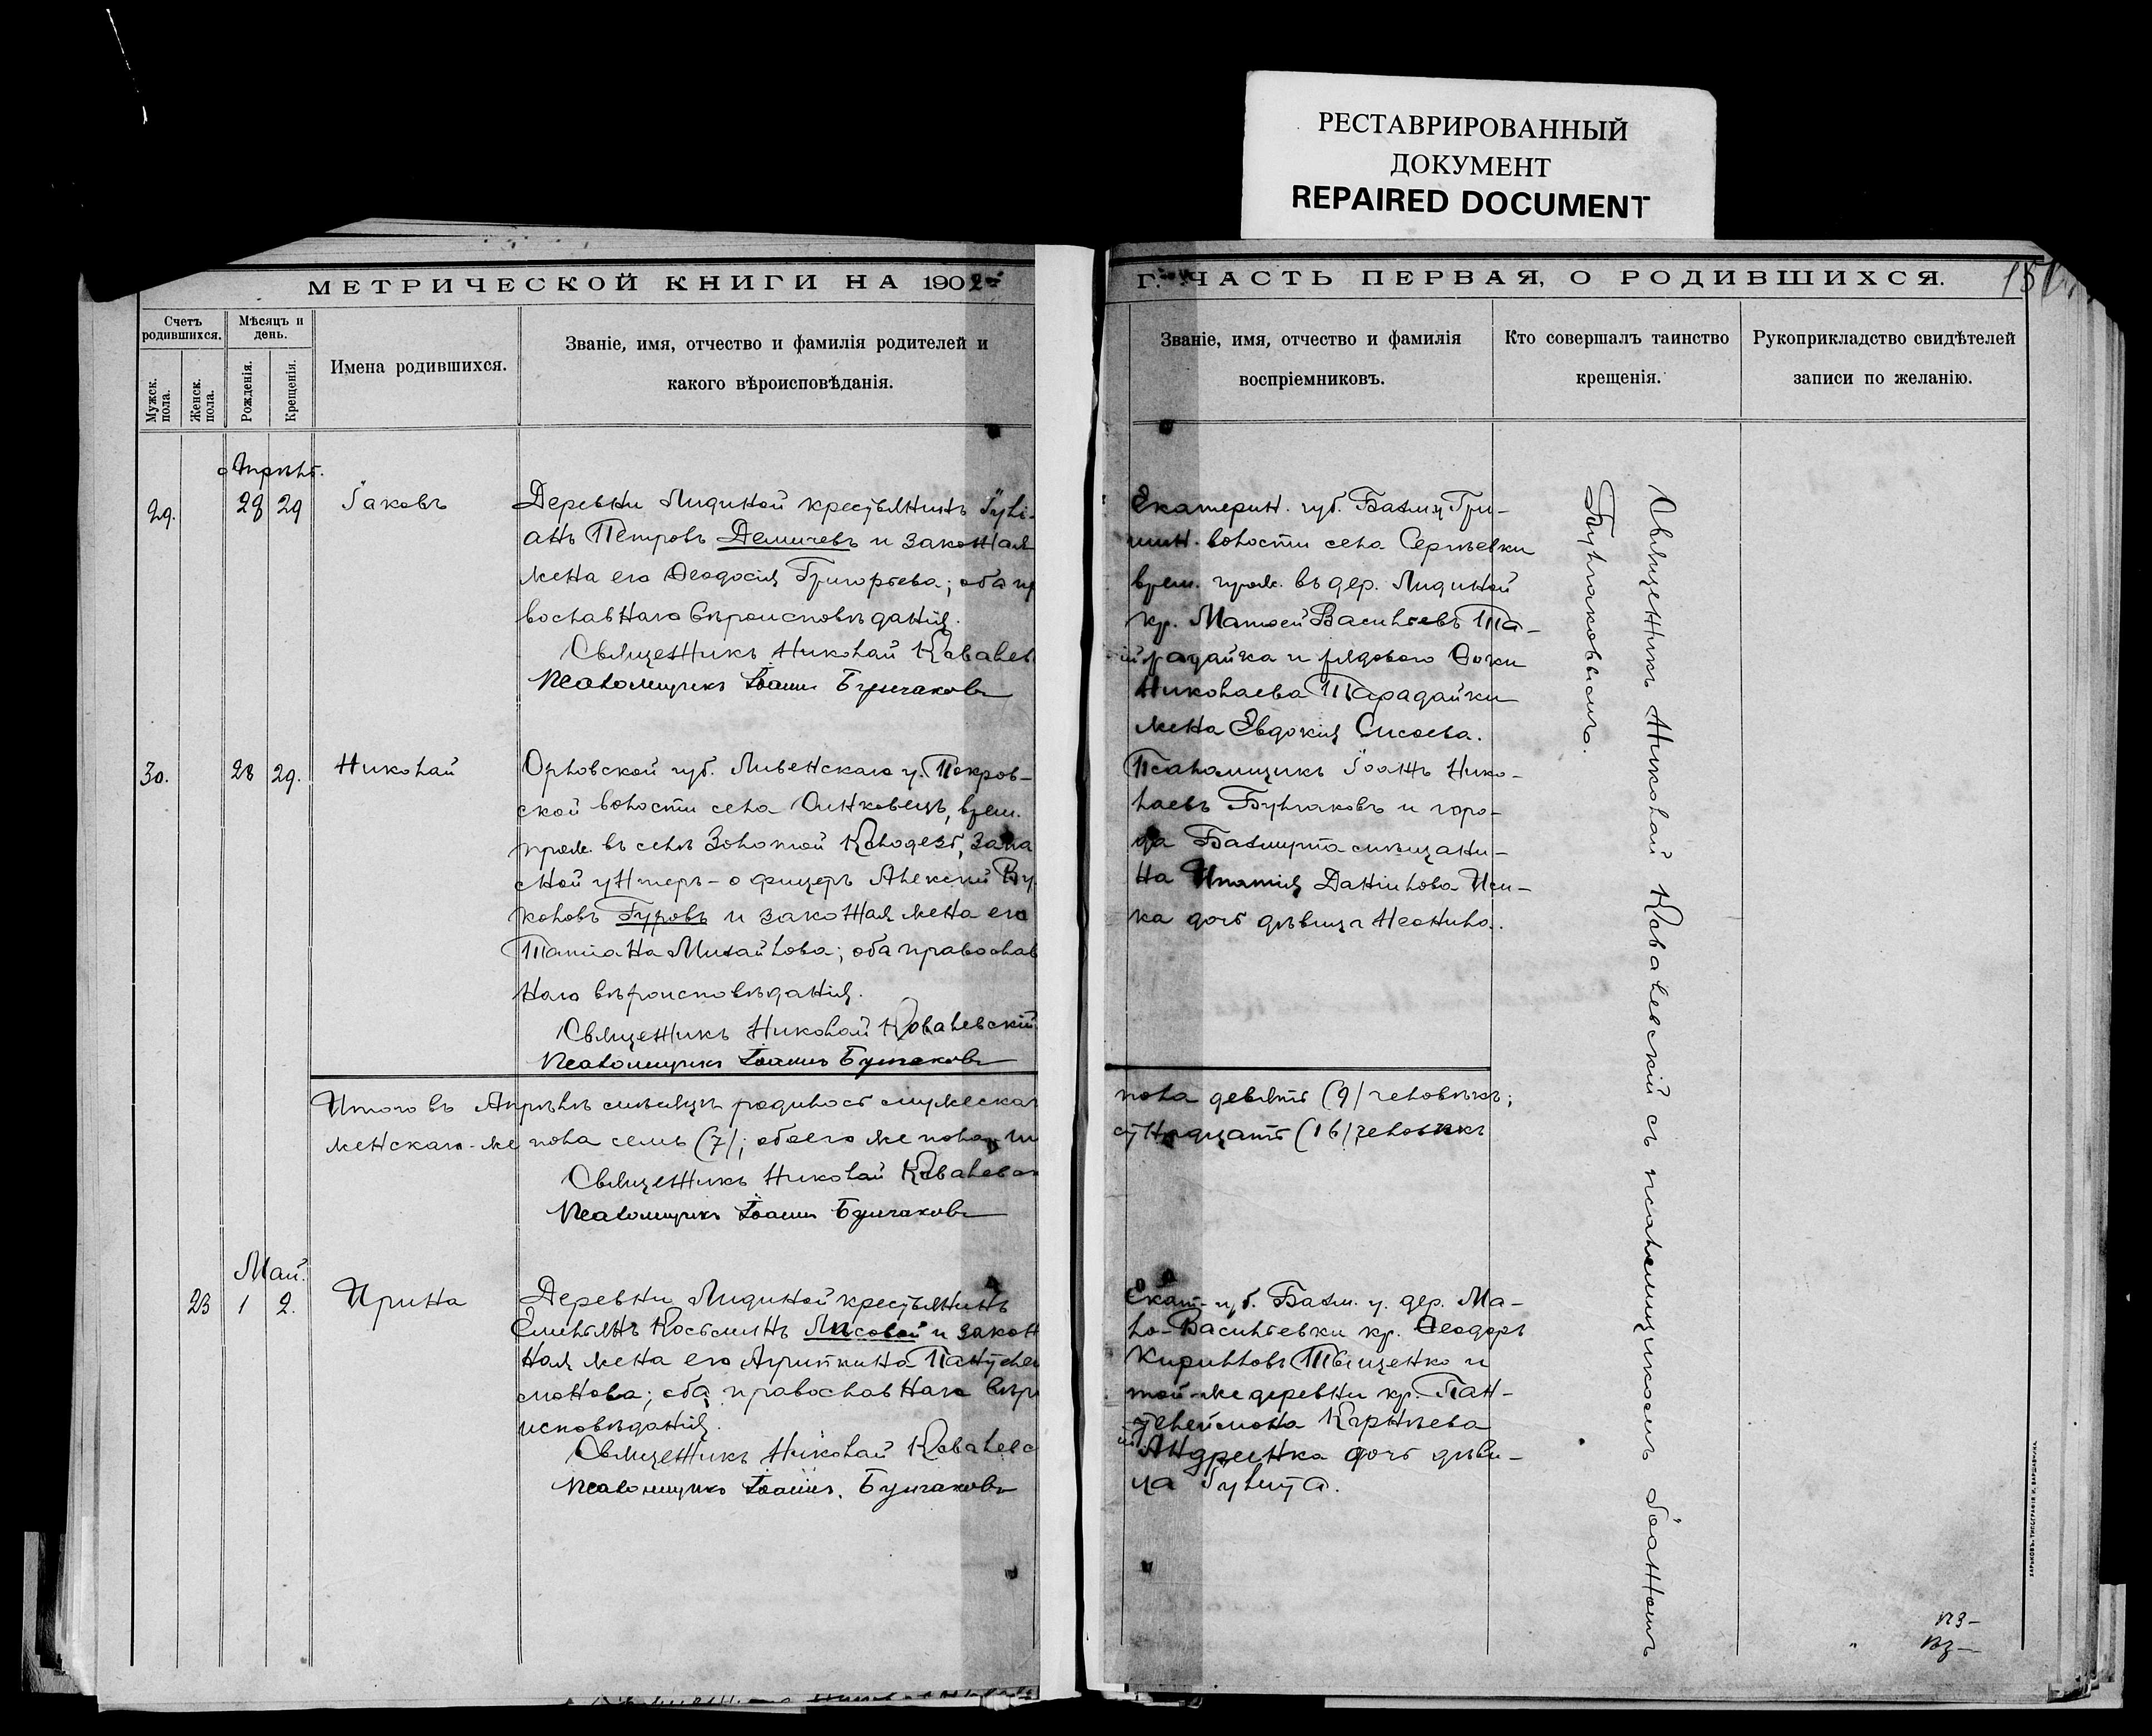 РЕСТАВРИРОВАННЫЙ
ДОКУМЕНТ
REPAIRED DOCUMENT
МЕТРИЧЕСКОЙ КНИГИ НА 1902
Г. ЧАСТЬ ПЕРВАЯ, О РОДИВШИХСЯ.
Счетъ родившихся.
Мужск. пола.
Женск. пола.
Мѣсяцъ и день.
Рожденія.
Крещенія.
Имена родившихся.
Званіе, имя, отчество и фамилія родителей и
какого вѣроисповѣданія.
Званіе, имя, отчество и фамилія
воспріемниковъ.
Кто совершалъ таинство
крещенія.
Рукоприкладство свидѣтелей
записи по желанію.
Апрѣль.
29. 28 29 Іаковъ
Деревни Лидиной крестьянинъ Іулі-
анъ Петровъ Демичевъ и законная
жена его Ѳеодосія Григорьева; оба пр
вославнаго вѣроисповѣданія.
Священникъ Николай Ковалев
Псаломщикъ Іоаннъ Булгаковъ
Екатерин. губ. Бахм. у. Гри-
шин. волости села Сергѣевки
врем. прож. въ дер. Лидиной
кр. Матѳей Васильевъ Та-
радайка и рядового Ѳоки
Николаева Тарадайки
жена Евдокія Сысоева.
30. 28 29. Николай
Орловской губ. Ливенскаго у. Покров-
ской волости села врем.
прож. въ селѣ Золотой Колодезь, запа
сной унтеръ-офицеръ Алексѣй Ву-
коловъ Гуровъ и законная жена его
Татіана Михайлова; оба православ
наго вѣроисповѣданія.
Священникъ Николай Ковалевскій
Псаломщикъ Іоаннъ Булгаковъ
Псаломщикъ Іоаннъ Нико-
лаевъ Булгаковъ и горо-
да Бахмута мѣщани-
на Игнатія Даніилова Иси-
ка дочь дѣвица Неонила.
Итого въ Апрѣлѣ мѣсяцѣ родилось мужескаг
женскаго-же пола семь (7); обоего же пола ше
Священникъ Николай Ковалевск
Псаломщикъ Іоаннъ Булгаковъ
пола девять (9) человѣкъ;
стнадцать (16) человѣкъ
Май.
23 1 2. Ирина
Деревни Лидиной крестьянинъ
Емельянъ Косьминъ Лисовой и закон
ная жена его Агриппина Пантелеи
монова; оба православнаго вѣро
исповѣданія.
Священникъ Николай Ковалевс
Псаломщикъ Іоаннъ Булгаковъ
Екат. губ. Бахм. у. дер. Ма-
ло-Васильевки кр. Ѳеодоръ
Кирилловъ Тыщенко и
той-же деревни кр. Пан-
телеимона Карнѣева
Андреенка дочь дѣви-
ца Іулитта.
Священникъ Николай Ковалевскій съ псаломщикомъ Іоанномъ
Булгаковымъ.